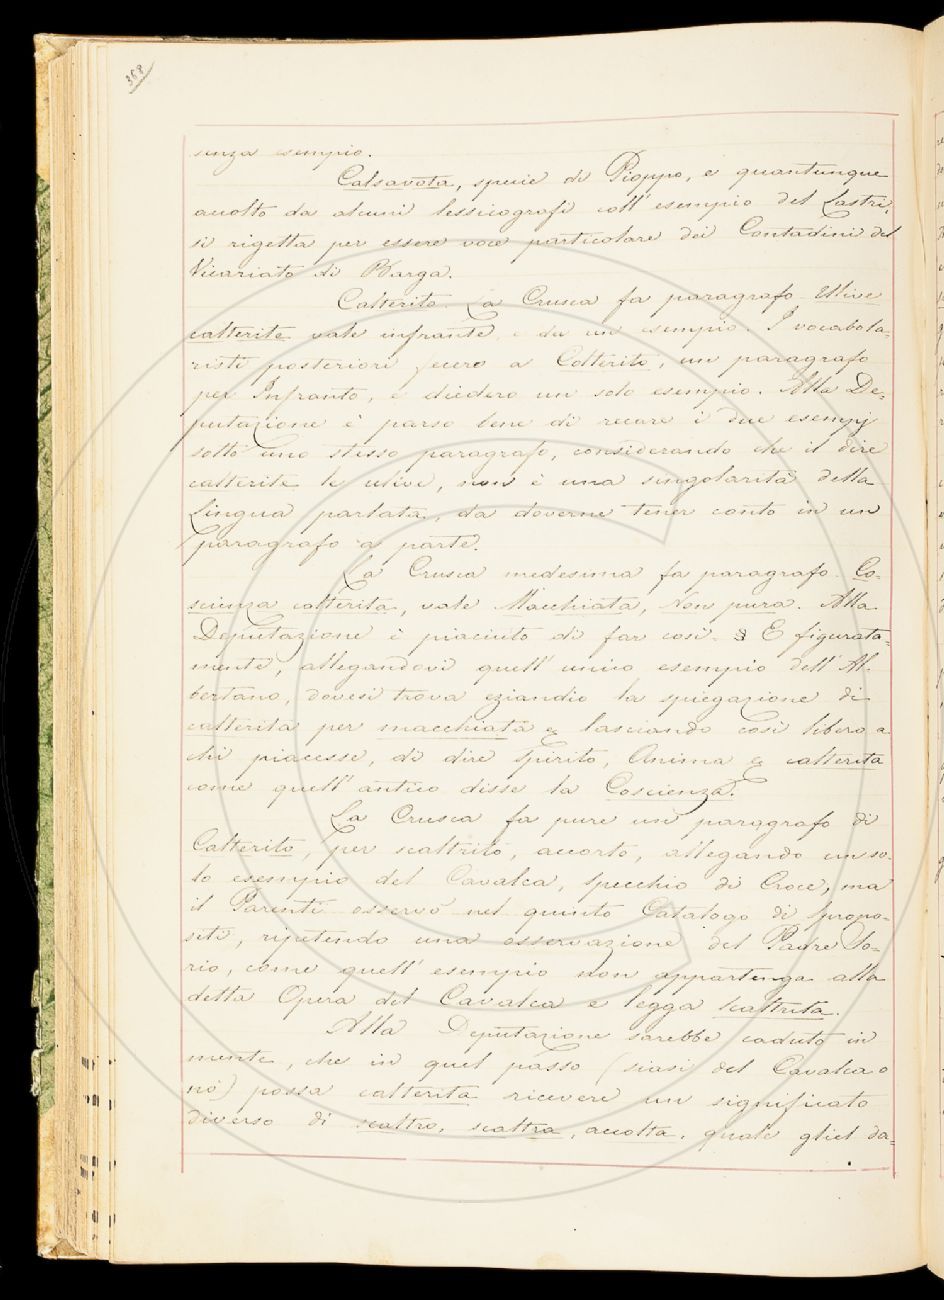 368
senza esempio.
Calsavota, specie di Pioppo, e quantunque
accolto da alcuni lessicografi coll'esempio del Lastri,
si rigetta per essere voce particolare dei Contadini del
Vicariato di Barga.
Calterito. La Crusca fa paragrafo. Ulive
calterite vale infrante, e dà un esempio. I vocabola=
risti posteriori fecero a Calterito, un paragrafo
per Infranto, e diedero un solo esempio. Alla De=
putazione è parso bene di recare i due esempj
sotto uno stesso paragrafo, considerando che il dire
calterite le ulive, non è una singolarità della
Lingua parlata, da doverne tener conto in un
paragrafo a parte.
La Crusca medesima fa paragrafo. Co-
scienza calterita, vale Macchiata, Non pura. Alla
Deputazione è piaciuto di far così. § E figurata=
mente, allegandovi quell'unico esempio dell'Al-
bertano, dovesi trova eziandio la spiegazione di
calterita per macchiata e lasciando così libero a
chi piacesse, di dire Spirito, Anima calterita
come quell'antico disse la Coscienza.
La Crusca fa pure un paragrafo di
Calterito, per scaltrito, accorto, allegando un so-
lo esempio del Cavalca, Specchio di Croce, ma
il Parenti osservò nel quinto Catalogo di spropo-
siti, ripetendo una osservazione del Padre So-
rio, come quell'esempio non appartenga alla
detta Opera del Cavalca e legga scaltrita.
Alla Deputazione sarebbe caduto in
mente, che in quel passo (siasi del Cavalca o
nò) possa calterita ricevere un significato
diverso di scaltro, scaltra, accolta, quale gliel da=